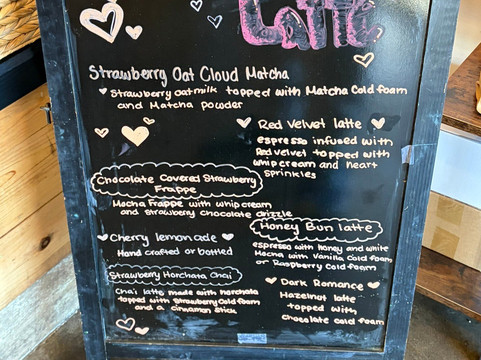 Latte
Strawberry Oat Cloud Matcha
Strawberry oatmilk topped with Matcha Cold foam
and Matcha powder
Red Velvet latte
espresso infused with
Red velvet topped with
whip cream and heart
sprinkles
Chocolate Covered Strawberry
Frappe
Mocha Frappe with whip cream
and strawberry chocolate drizzle
Honey Bun latte
espresso with honey and white
Mocha with Vanilla Cold foam
or Raspberry Cold foam
Cherry lemonade
Hand crafted or bottled
Strawberry Horchata Chai
Chai latte made with horchata
topped with Strawberry Cold foam
and a cinnamon stick
Dark Romance
Hazelnut latte
topped with
chocolate cold foam